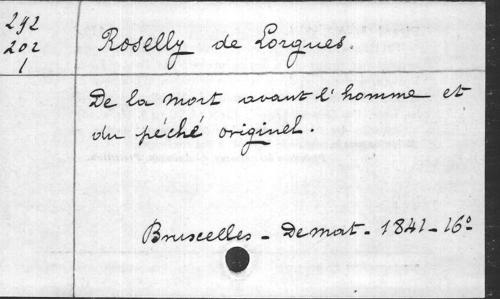 292
202
1
Roselly de Lorgues.
De la mort avant l'homme et
du péché originel.
Bruxelles - Demat - 1841 - 16º